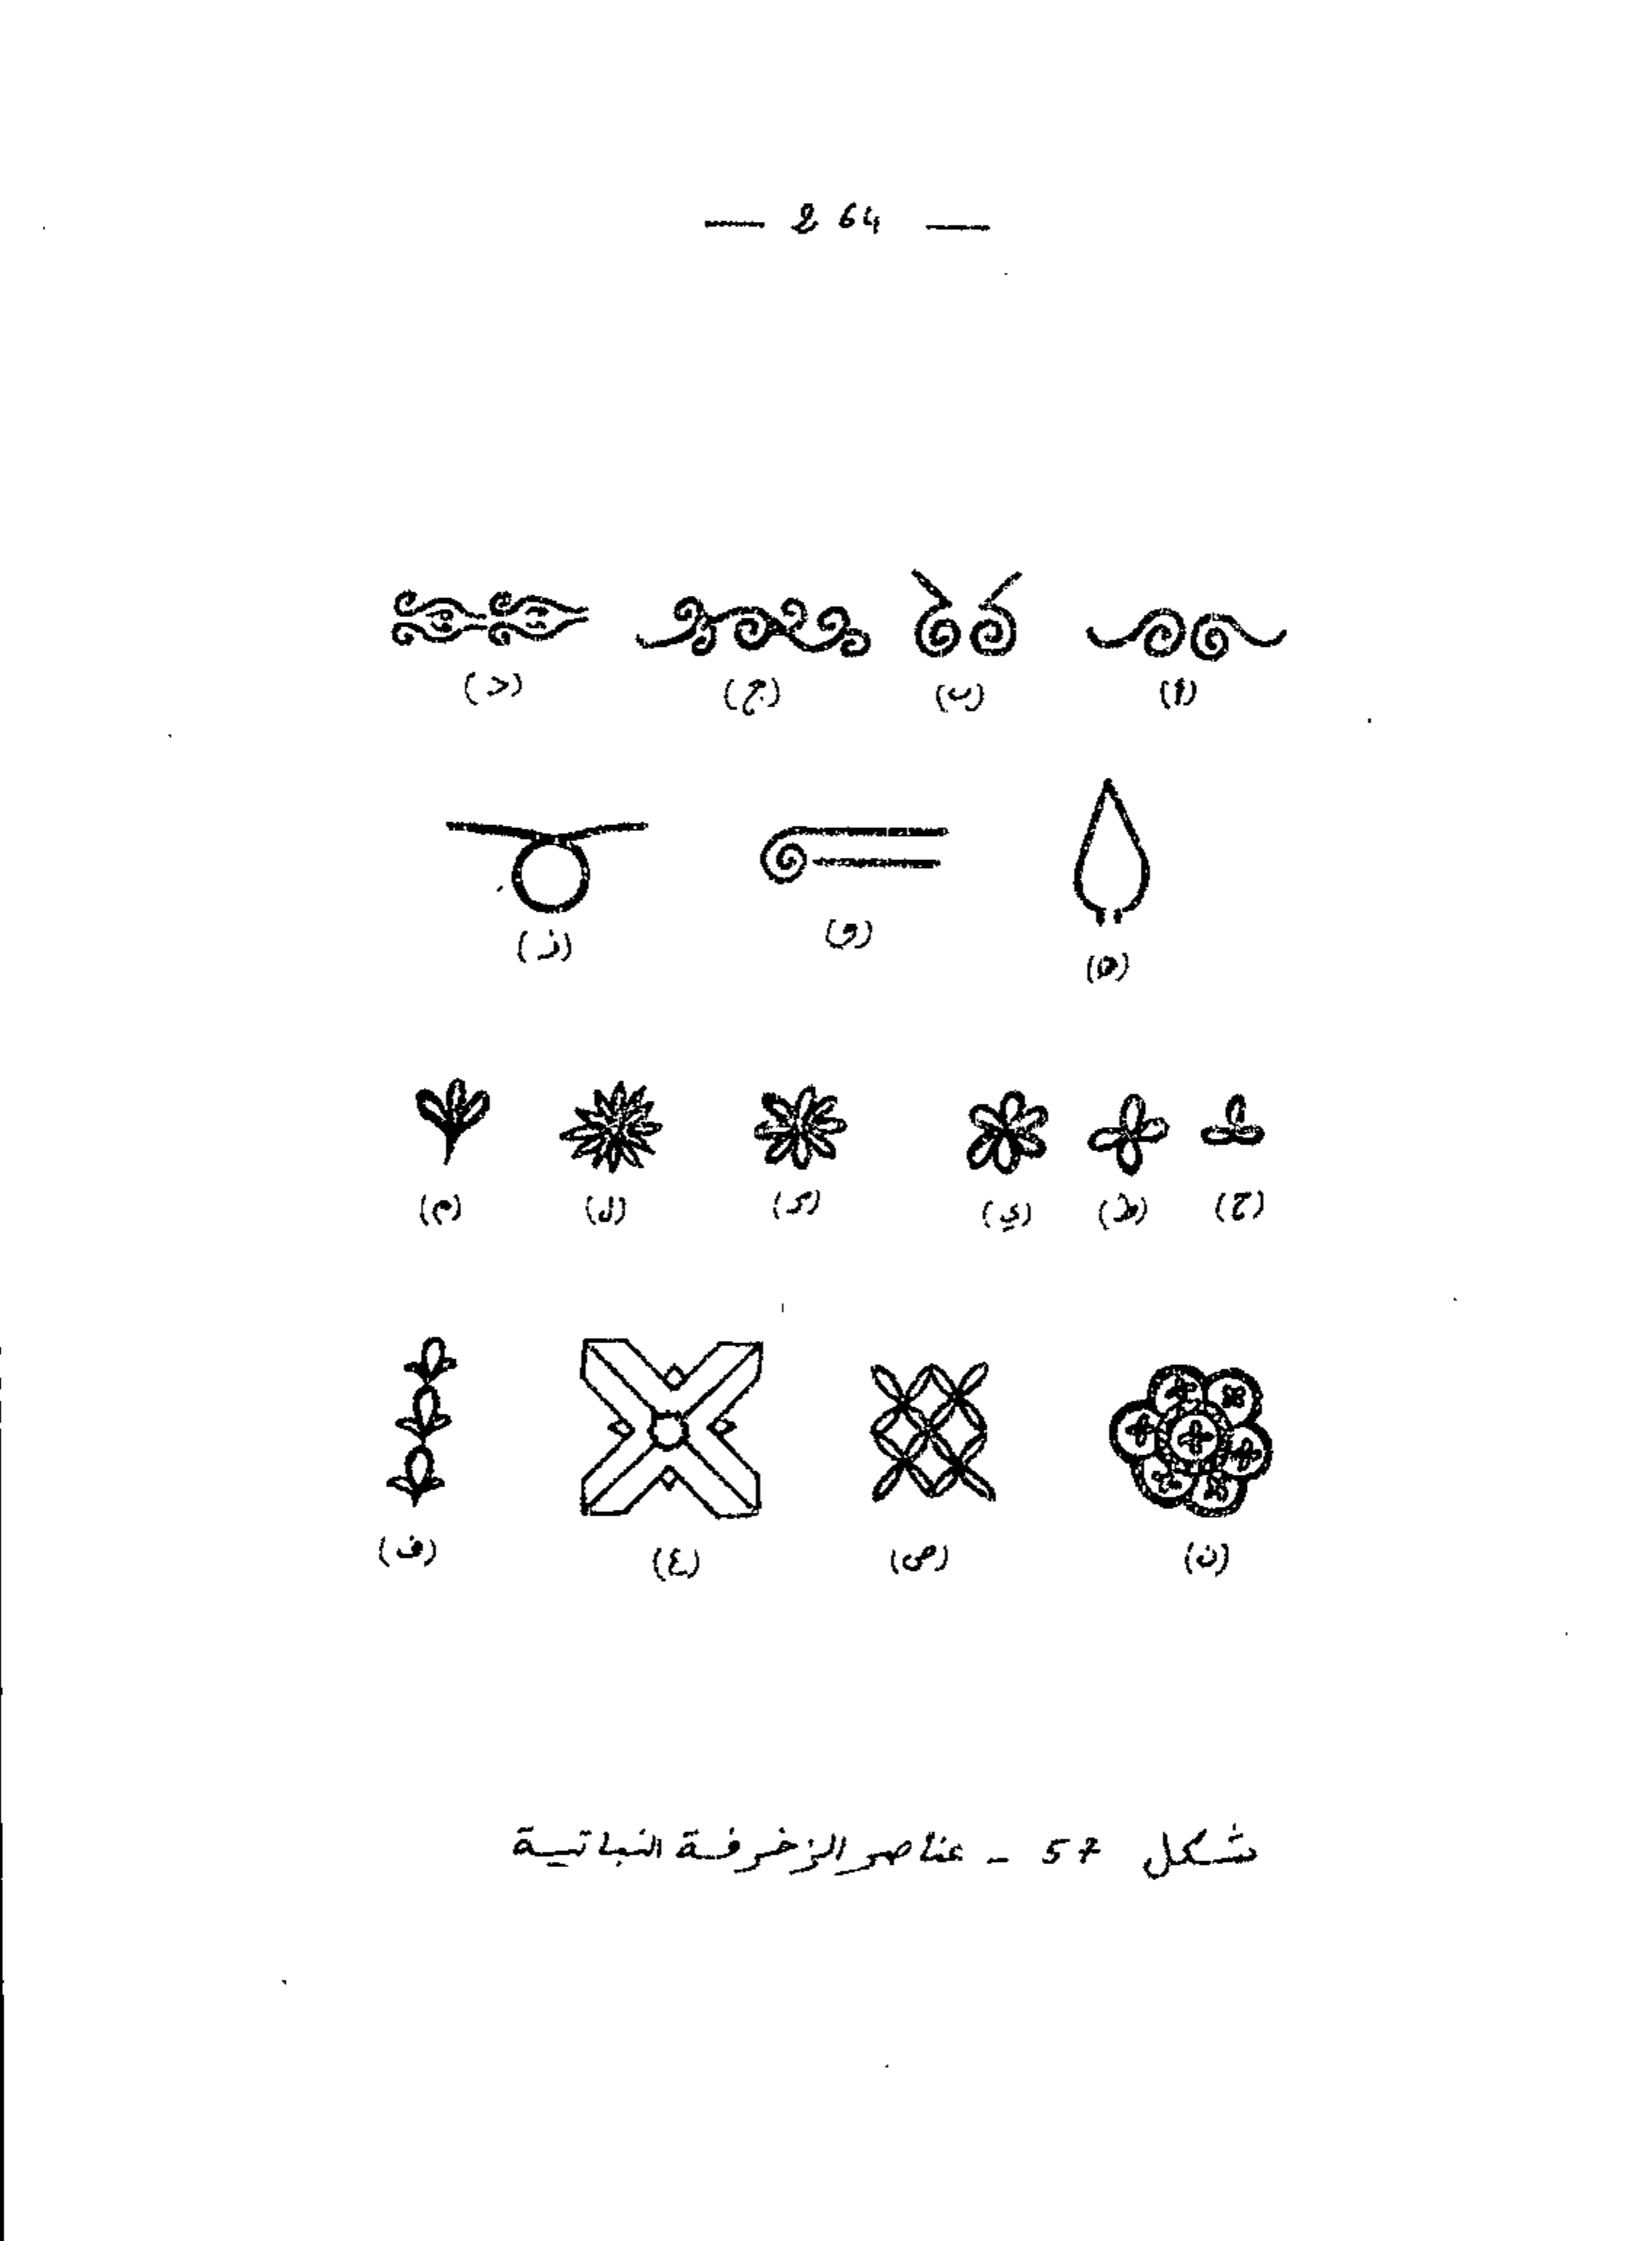 — 264 —
(أ) (ب) (ج) (د)
(ه) (و) (ز)
(ح) (ط) (ي) (ك) (ل) (م)
(ن) (ص) (ع) (ف)
شكل 57 - عناصر الزخرفة النباتية